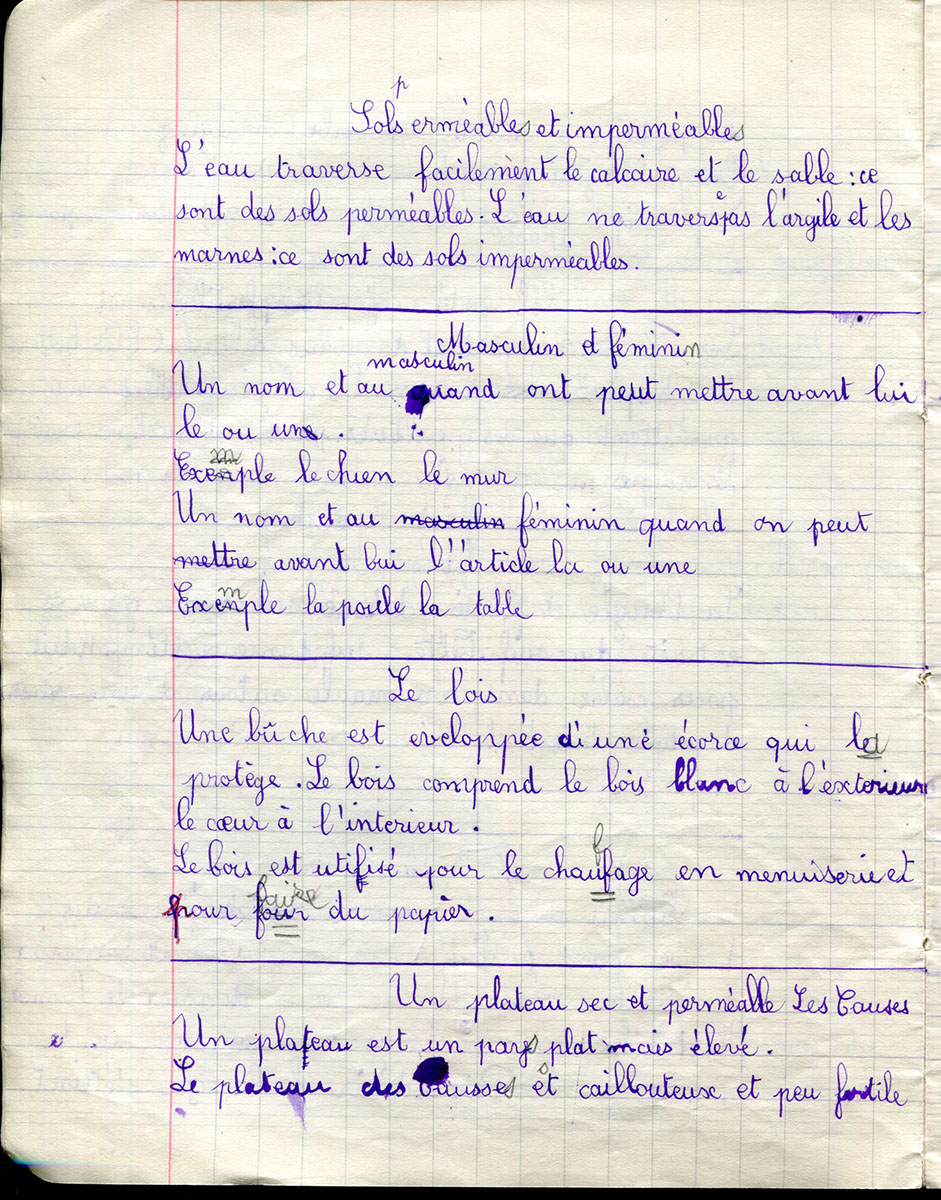 p
Sols erméables et imperméables
L'eau traverse facilement le calcaire et le sable : ce
sont des sols perméables. L'eau ne traverse pas l'argile et les
marnes : ce sont des sols imperméables.
Masculin et féminin
masculin
Un nom et au quand ont peut mettre avant lui
le ou une .
m
Exenple le chien le mur
Un nom et au masculin féminin quand on peut
mettre avant lui l'article la ou une
m
Exenple la poule la table
Le bois
Une bûche est eveloppée d'une écorce qui la
protège. Le bois comprend le bois blanc à l'éxterieur
le cœur à l'interieur .
f
Le bois est utilisé pour le chaufage en menuiserie et
faire
pour four du papier .
Un plateau sec et perméable Les Causes
Un plateau est un pays plat mais élevé .
s
Le plateau des causses et caillouteux et peu fertile